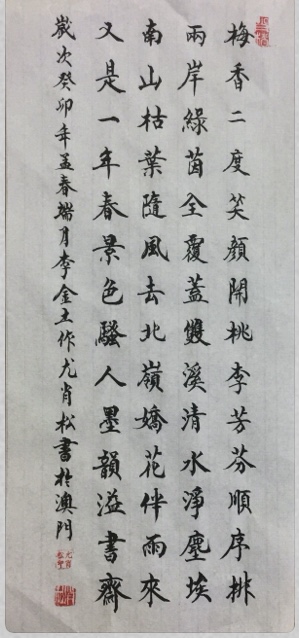 梅香二度笑顏開桃李芳芬順序排
兩岸綠茵全覆蓋雙溪清水淨塵埃
南山枯葉隨風去北嶺嬌花伴雨來
又是一年春景色騷人墨韻溢書齋
歲次癸卯年孟春端月李金土作尤肖松書於澳門